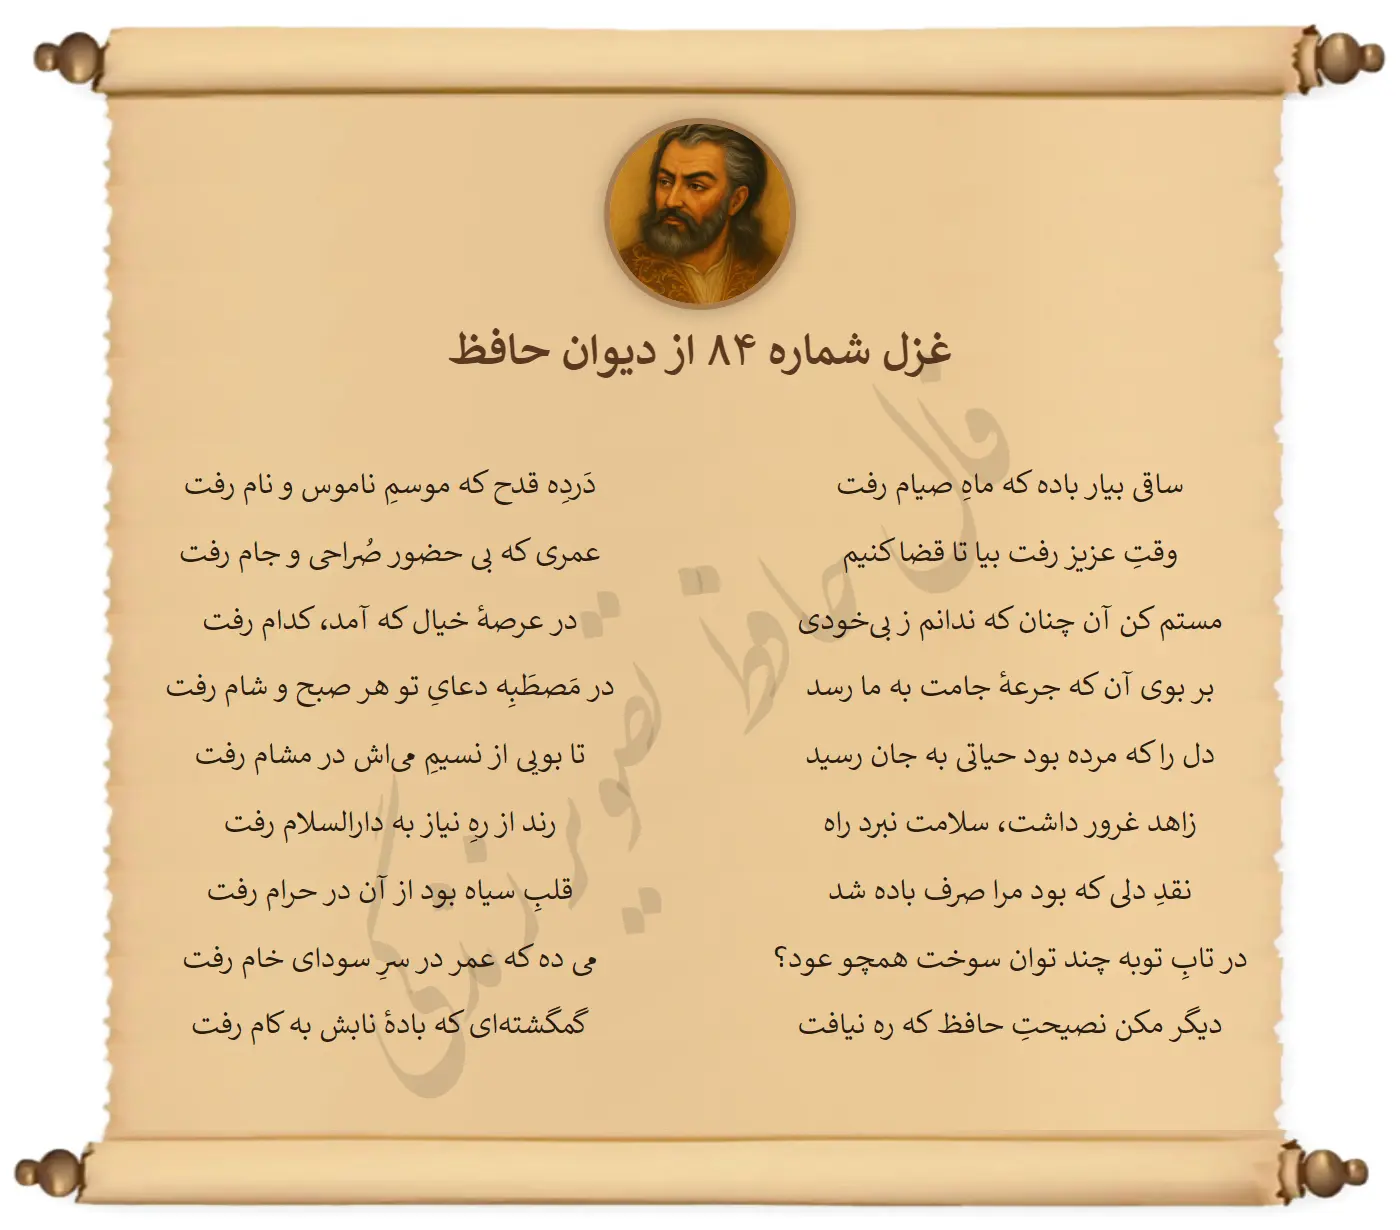 غزل شماره ۸۴ از دیوان حافظ
ساقی بیار باده که ماهِ صیام رفت
دَردِه قدح که موسمِ ناموس و نام رفت
وقتِ عزیز رفت بیا تا قضا کنیم
عمری که بی حضور صُراحی و جام رفت
مستم کن آن چنان که ندانم ز بی‌خودی
در عرصهٔ خیال که آمد، کدام رفت
بر بوی آن که جرعهٔ جامت به ما رسد
در مَصطَبِه دعایِ تو هر صبح و شام رفت
دل را که مرده بود حیاتی به جان رسید
تا بویی از نسیمِ می‌اش در مشام رفت
زاهد غرور داشت، سلامت نبرد راه
رند از رهِ نیاز به دارالسلام رفت
نقدِ دلی که بود مرا صرف باده شد
قلبِ سیاه بود از آن در حرام رفت
در تابِ توبه چند توان سوخت همچو عود؟
می ده که عمر در سرِ سودای خام رفت
دیگر مکن نصیحتِ حافظ که ره نیافت
گمگشته‌ای که بادهٔ نابش به کام رفت
فال حافظ تصویر زندگی